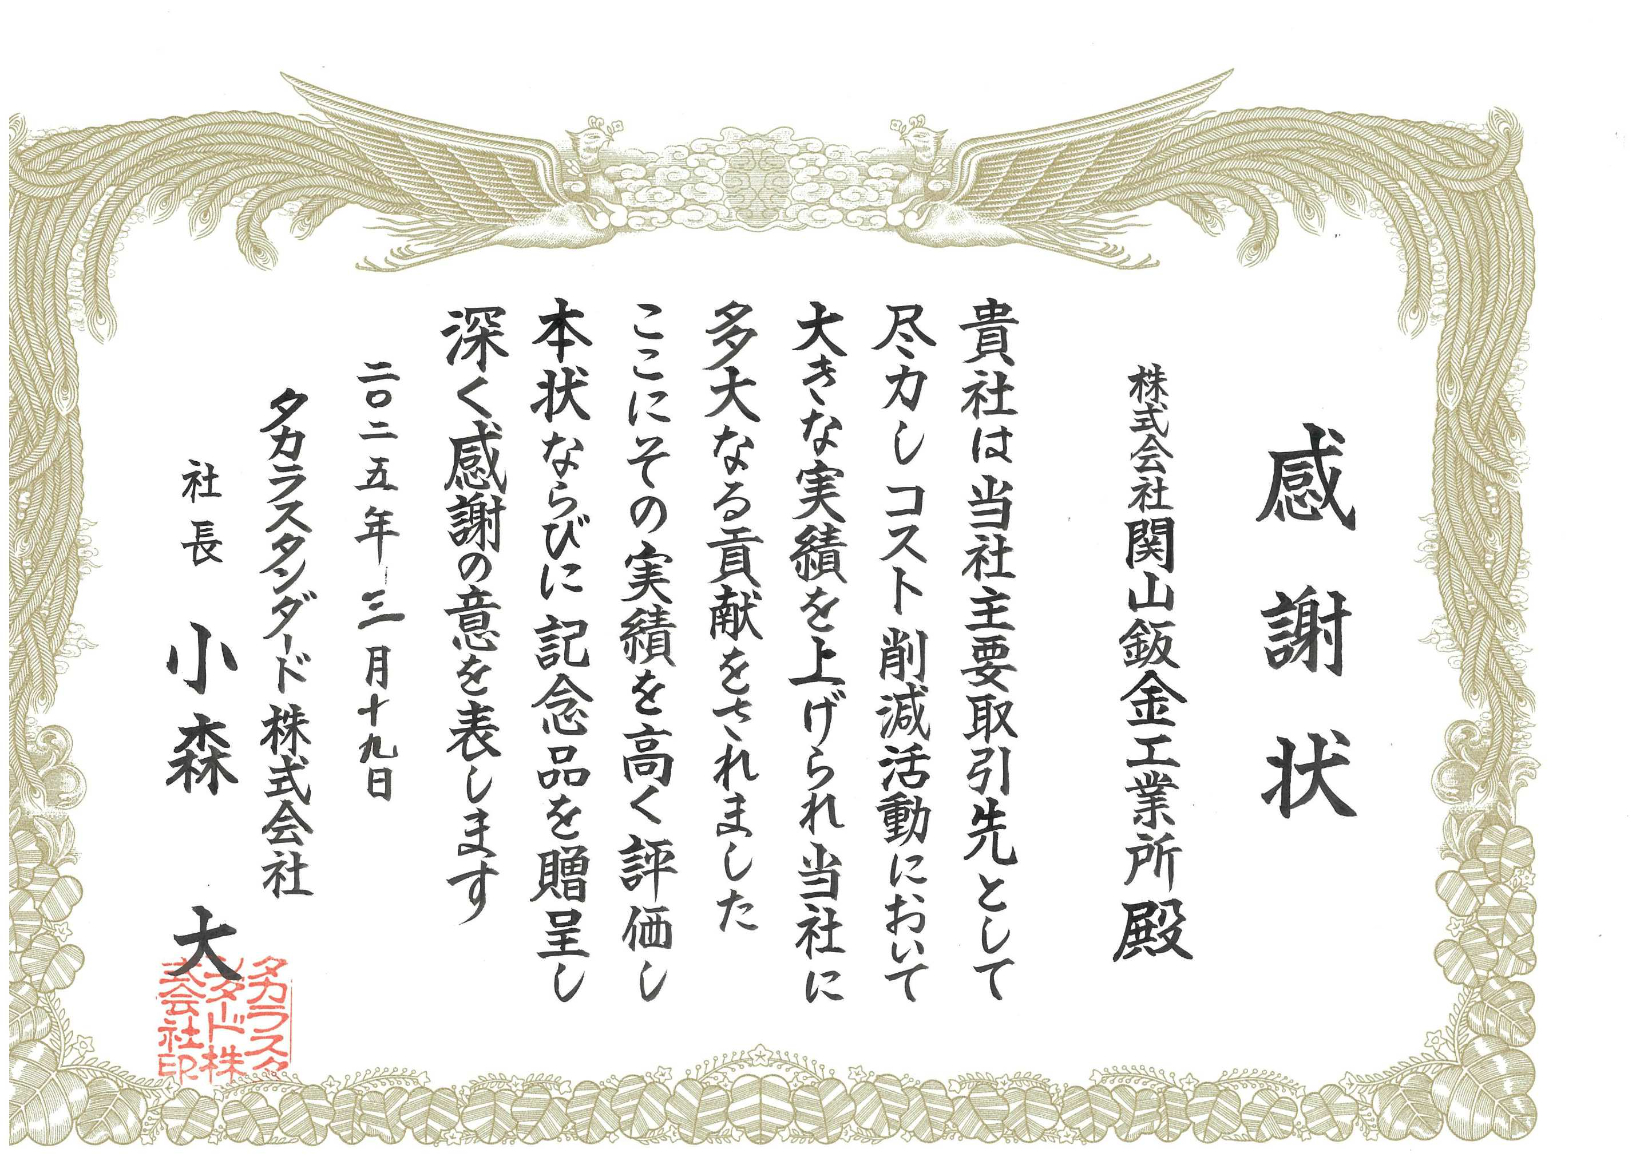 感謝状
株式会社関山鈑金工業所殿
貴社は当社主要取引先として
尽力しコスト削減活動において
大きな実績を上げられ当社に
多大なる貢献をされました
ここにその実績を高く評価し
本状ならびに記念品を贈呈し
深く感謝の意を表します
二〇二五年三月十九日
タカラスタンダード株式会社
社長 小森 大
タカラスタ
ンダード株
式会社印